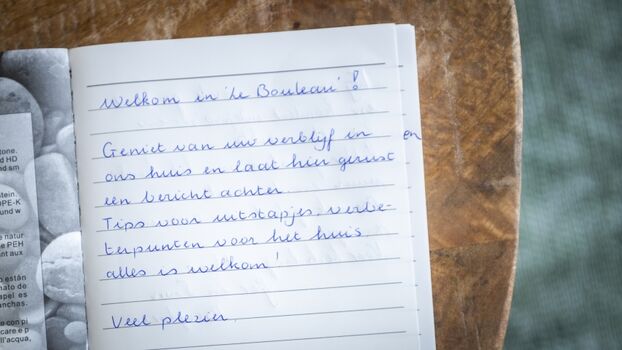 Welkom in 'Le Bouleau' !
Geniet van uw verblijf in en
ons huis en laat hier gerust
een bericht achter
Tips voor uitstapjes, verbe-
terpunten voor het huis,
alles is welkom!
Veel plezier.
tone.
nd HD
nd sm
tein.
OPE-K
und w
natur
te PEH
ant aux
están
mato de
apel es
nchas.
o con pi
care e p
l'acqua,